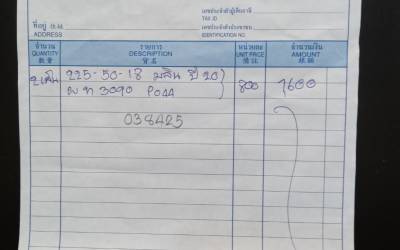 เลขประจำตัวผู้เสียภาษี
TAX ID
ที่อยู่
ADDRESS
เลขประจำตัวประชาชน
IDENTIFICATION NO.
จำนวน รายการ หน่วยละ จำนวนเงิน
QUANTITY DESCRIPTION UNIT PRICE AMOUNT
數量 貨名 價註 銀碼
2เส้น 225-50-18 ปี 20) 800 1600
3090
038425